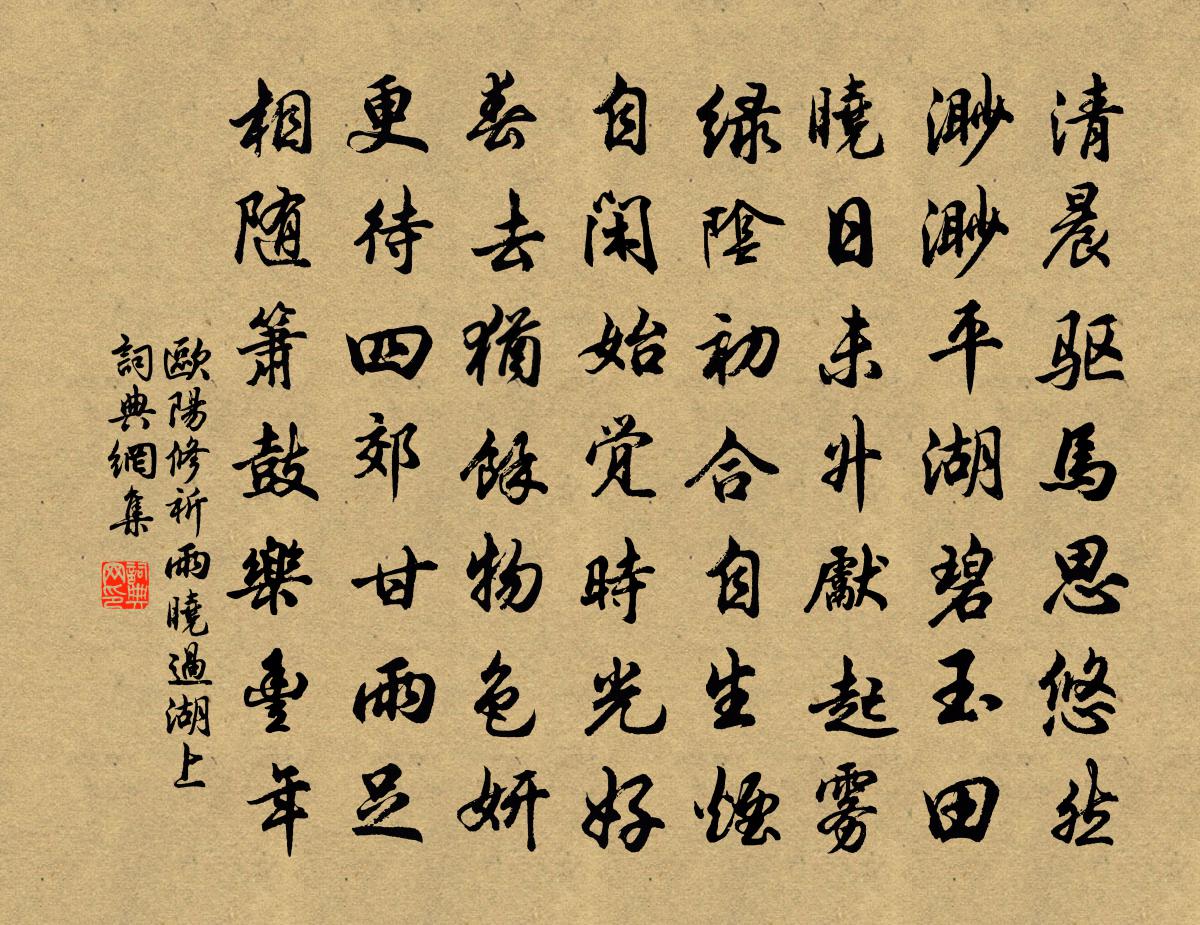 清晨驱馬思悠然
渺渺平湖碧玉田
曉日未升獻起雾
緑陰初合自生煙
自闲始覚時光好
春去猶餘物色妍
更待四郊甘雨足
相随箫鼓樂豊年
歐陽修祈雨曉過湖上
詞典網集
詞典网印